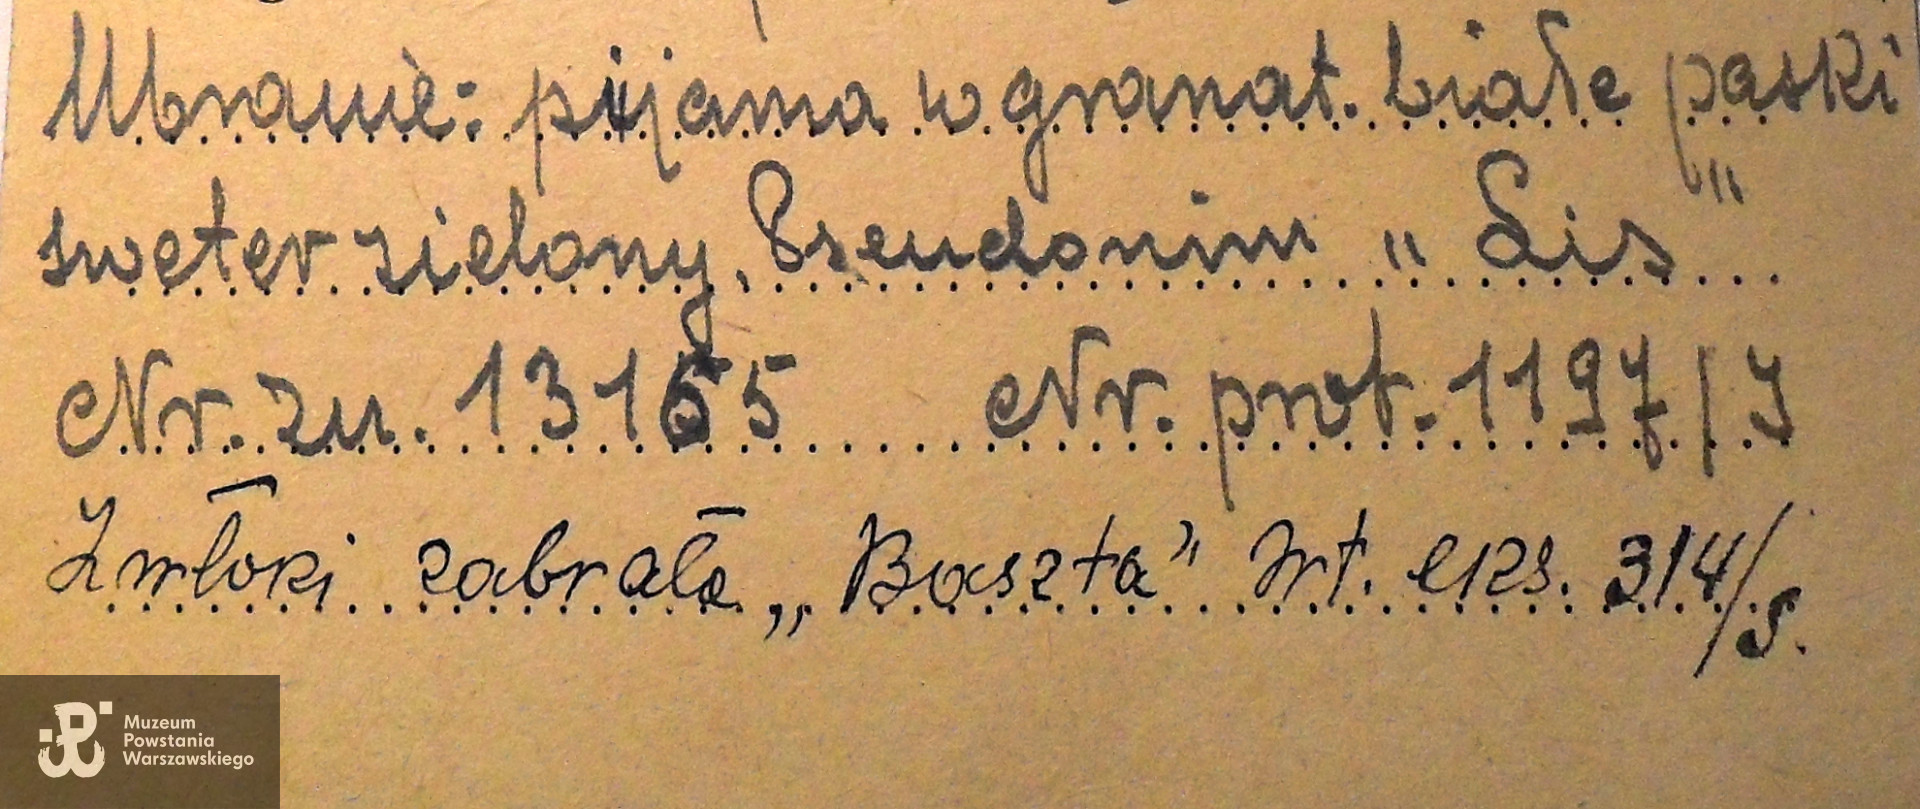 Ubranie: pijama w granat. białe paski
sweter zielony. Pseudonim "Lis"
Nr. zn. 13165 Nr. prot. 1197/I
Zwłoki zabrała „Baszta” Nrt. eks. 314/s.
Muzeum
Powstania
Warszawskiego